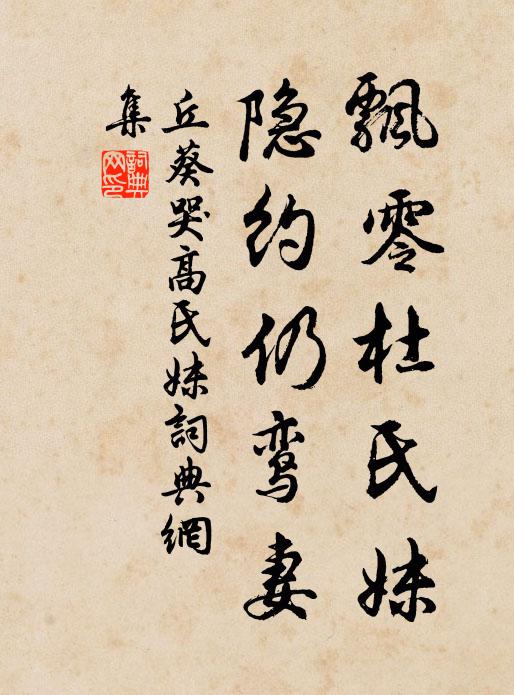 飄零杜氏妹
隐约仍鸾妻
丘葵哭高氏妹詞典網
集
詞典
网印